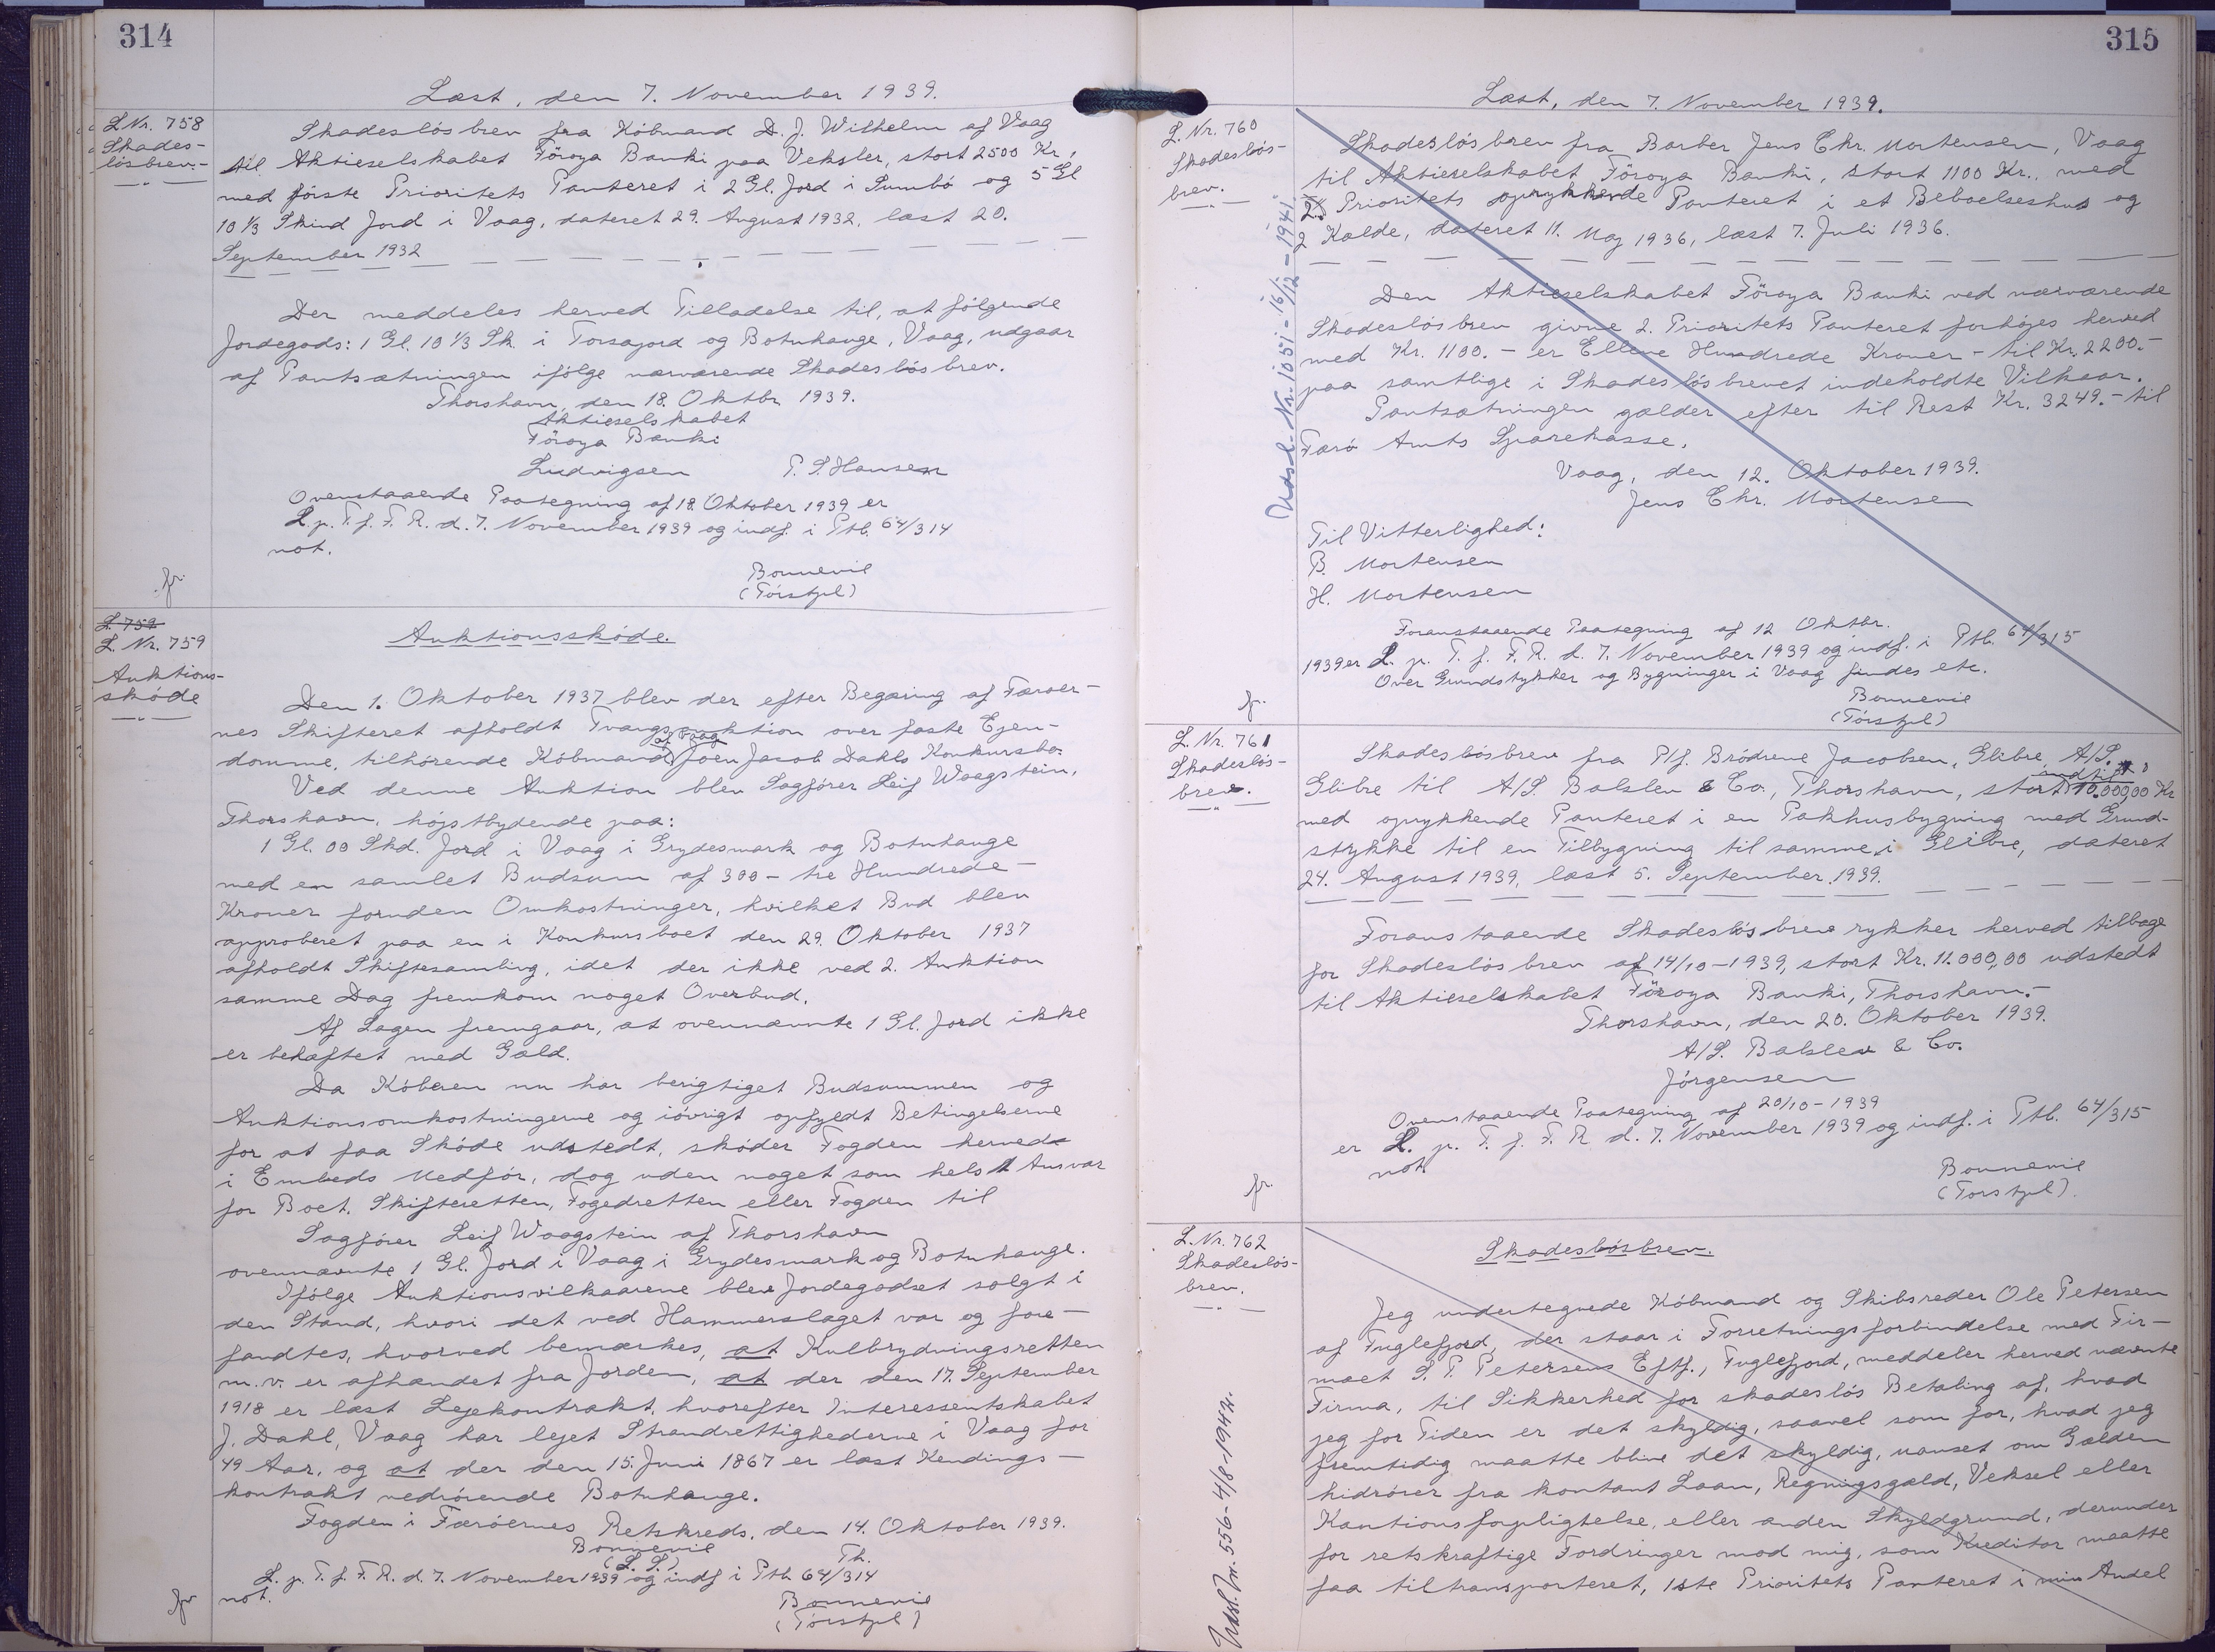 314
Læst, den 7. November 1939.
L Nr. 758
Skades-
lösbrev.
Skadeslösbrev fra Köbmand D. J. Wilhelm af Vaag
til Aktieselskabet Föroya Banki paa Veksler, stort 2500 Kr,
med förste Prioritets Panteret i 2 Gl. Jord i Sumbö og 5 Gl
10 1/3 Skind Jord i Vaag, dateret 29. August 1932, læst 20.
September 1932
Der meddeles herved Tilladelse til, at fölgende
Jordegods: 1 Gl. 10 1/3 Sk. i Torsajord og Botnhauge, Vaag, udgaar
af Pantsætningen ifölge nærværende Skadeslösbrev.
Thorshavn, den 18. Oktbr 1939.
Aktieselskabet
Föroya Banki
Ludvigsen P. S. Hansen
Ovenstaaende Paategning af 18. Oktober 1939 er
L. p. T. f. F. R. d. 7. November 1939 og indf. i Ptb. 64/314
not.
Bonnevie
(Tórstpl)
fr.
L. 759
L. Nr. 759
Auktions-
sköde
Auktionssköde.
Den 1. Oktober 1937 blev der efter Begæring af Færöer-
nes Skifteret afholdt Tvangsauktion over faste Ejen-
domme, tilhörende Köbmand af Vaag Joen Jacob Dahls Konkursbo.
Ved denne Auktion blev Sagförer Leif Waagstein,
Thorshavn, höjstbydende paa:
1 Gl. 00 Skd. Jord i Vaag i Grydesmark og Botnhauge
med en samlet Budsum af 300 - tre Hundrede -
Kroner foruden Omkostninger, hvilket Bud blev
approberet paa en i Konkursboet den 29. Oktober 1937
afholdt Skiftesamling, idet der ikke ved 2. Auktion
samme Dag fremkom noget Overbud.
Af Sagen fremgaar, at ovennævnte 1 Gl. Jord ikke
er behæftet med Gæld.
Da Köberen nu har berigtiget Budsummen og
Auktionsomkostningerne og iövrigt opfyldt Betingelserne
for at faa Sköde udstedt, sköder Fogden herved
i Embeds Medför, dog uden noget som helst Ansvar
for Boet, Skifteretten, Fogedretten eller Fogden til
Sagförer Leif Waagstein af Thorshavn
ovennævnte 1 Gl. Jord i Vaag i Grydesmark og Botnhauge.
Ifölge Auktionsvilkaarene blev Jordegodset solgt i
den Stand, hvori det ved Hammerslaget var og fore-
fandtes, hvorved bemærkes, at Kulbrydningsretten
m.v. er afhændet fra Jorden, at der den 17. September
1918 er læst Lejekontrakt, hvorefter Interessentskabet
J. Dahl, Vaag har lejet Strandrettighederne i Vaag for
49 Aar, og at der den 15. Juni 1867 er læst Kendings-
kontrakt vedrörende Botnhauge.
Fogden i Færöernes Retskreds, den 14. Oktober 1939.
Bonnevie
(L. S.) Th.
L. p. T. f. F. R. d. 7. November 1939 og indf i Ptb 64/314
not.
Bonnevie
(Tórstpl)
fr
315
Læst, den 7. November 1939.
L. Nr. 760
Skadeslös-
brev.
Udsl. Nr. 1051 - 16/12 - 1941.
Skadeslösbrev fra Barber Jens Chr. Mortensen, Vaag
til Aktieselskabet Föroya Banki, stort 1100 Kr., med
2. Prioritets oprykkende Panteret i et Beboelseshus og
2 Kælde, dateret 11. Maj 1936, læst 7. Juli 1936.
Den Aktieselskabet Föroya Banki ved nærværende
Skadeslösbrev givne 2. Prioritets Panteret forhöjes herved
med Kr. 1100.- er Elleve Hundrede Kroner - til Kr. 2200.-
paa samtlige i Skadeslösbrevet indeholdte Vilkaar.
Pantsætningen gælder efter til Rest Kr. 3249.- til
Færö Amts Sparekasse.
Vaag, den 12. Oktober 1939.
Jens Chr. Mortensen
Til Vitterlighed:
B. Mortensen
H. Mortensen
Foranstaaende Paategning af 12 Oktbr.
1939 er L. p. T. f. F. R. d. 7. November 1939 og indf. i Ptb. 64/315
Over Grundstykker og Bygninger i Vaag findes etc.
Bonnevie
(Tórstpl)
fr.
L. Nr. 761
Skadeslös-
brev.
Skadeslösbrev fra P/f. Brödrene Jacobsen, Glibre, A/S.
Glibre til A/S. Balslev & Co., Thorshavn, stort indtil 10.000,00 Kr
med oprykkende Panteret i en Pakhusbygning med Grund-
stykke til en Tilbygning til samme, i Glibre, dateret
24. August 1939, læst 5. September 1939.
Foranstaaende Skadeslösbrev rykker herved tilbage
for Skadeslösbrev af 14/10-1939, stort Kr. 11.000,00 udstedt
til Aktieselskabet Föroya Banki, Thorshavn.-
Thorshavn, den 20. Oktober 1939.
A/S. Balslev & Co.
Jörgensen
Ovenstaaende Paategning af 20/10-1939
er L. p. T. f. F. R d. 7. November 1939 og indf. i Ptb. 64/315
not
Bonnevie
(Torstpl).
fr.
L. Nr. 762
Skadeslös-
brev.
Udsl. Nr. 556 - 4/8-1942.
Skadeslösbrev.
Jeg undertegnede Köbmand og Skibsreder Ole Petersen
af Fuglefjord, der staar i Forretningsforbindelse med Fir-
maet S. P. Petersens Eftf., Fuglefjord, meddeler herved nævnte
Firma, til Sikkerhed for skadeslös Betaling af, hvad
jeg for Tiden er det skyldig, saavel som for, hvad jeg
fremtidig maatte blive det skyldig, uanset om Gælden
hidrörer fra kontant Laan, Regningsgæld, Veksel eller
Kautionsforpligtelse, eller anden Skyldgrund, derunder
for retskraftige Fordringer mod mig, som Kreditor maatte
faa tiltransporteret, 1ste Prioritets Panteret i min Andel